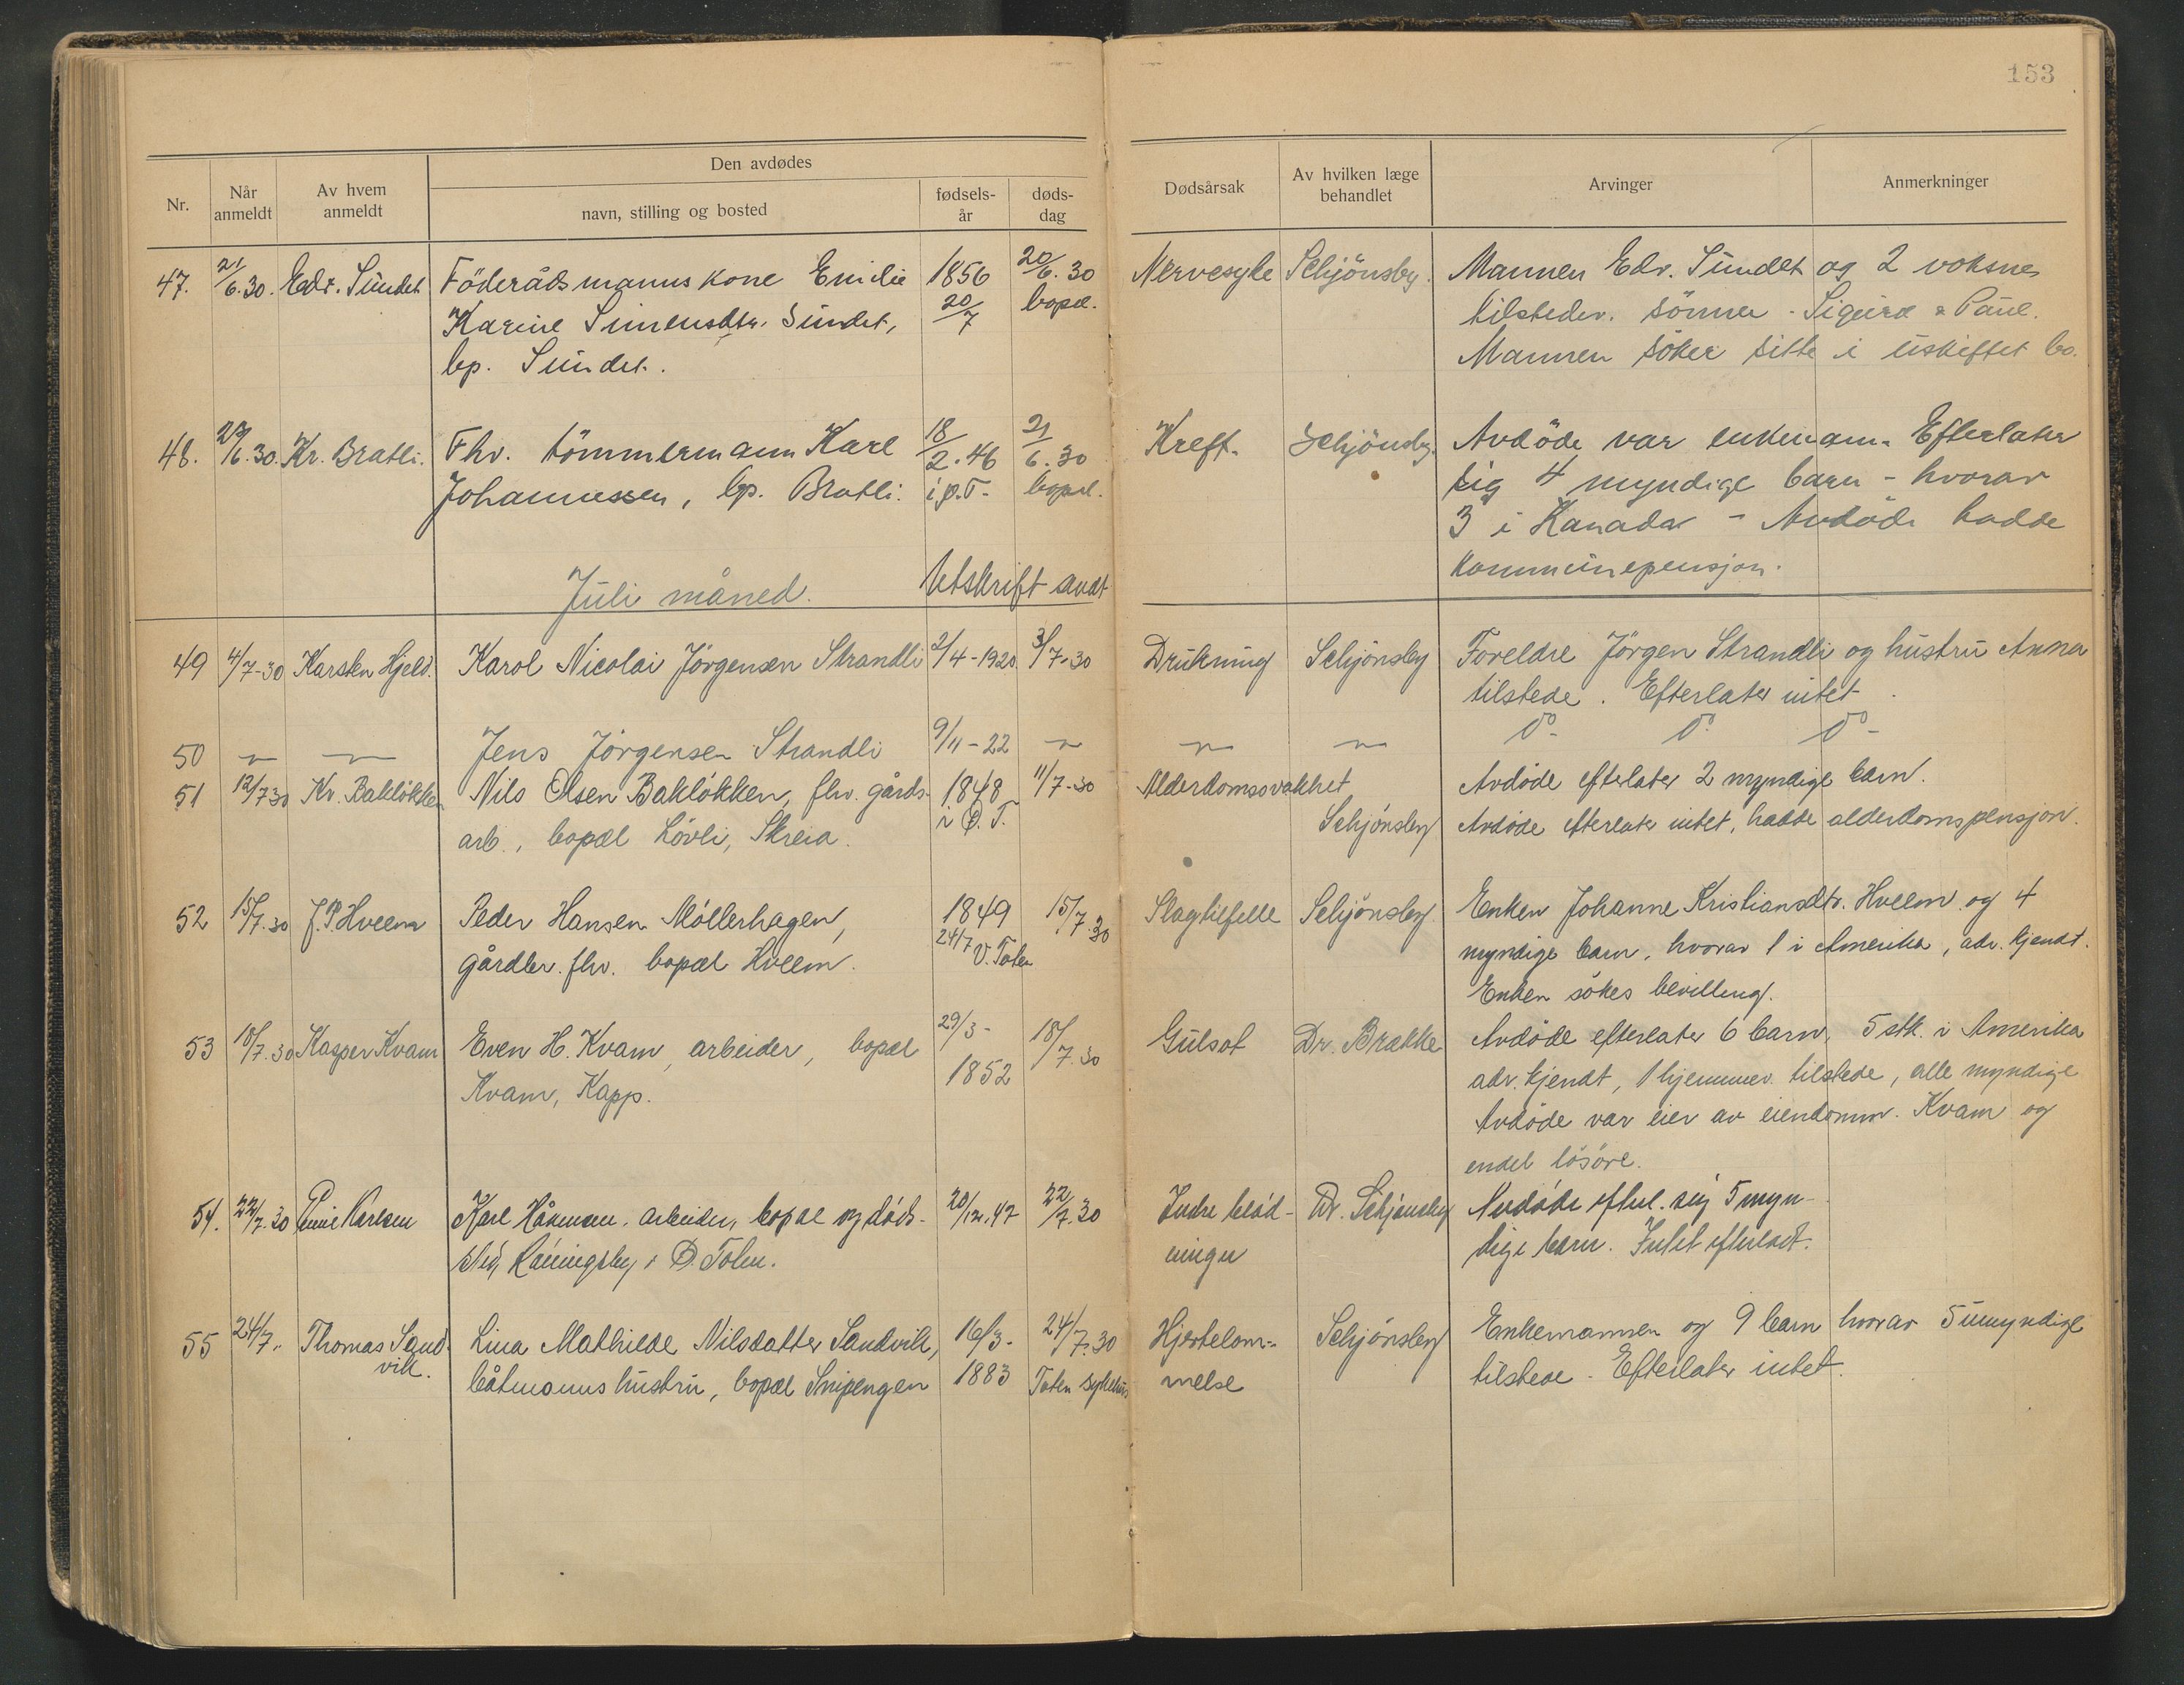 153
Den avdødes
Nr. Når anmeldt Av hvem anmeldt navn, stilling og bosted fødsels-år døds-dag Dødsårsak Av hvilken læge behandlet Arvinger Anmerkninger
47. 21/6.30. Edv. Sundet Föderådsmanns kone Emilie 1856 20/6.30 Nervesyke Schjönsby. Mannen Edv. Sundet og 2 voksne
Karine Simensdtr. Sundet, 20/7 bopæl. tilstedev. sönner - Sigurd & Paul.
bp. Sundet. Mannen söker sitte i uskiftet bo.
48. 23/6.30. Kr. Bratli. Fhv. tömmermann Karl 18/2.46 21/6.30 Kreft. Schjönsby. Avdöde var enkemann. Efterlater
Johannessen, bp. Bratli. i Ø.T. bopæl. sig 4 myndige barn - hvorav
3 i Kanada - Avdöde hadde
kommunepensjon.
Juli måned. Utskrift sendt
49 4/7-30 Karsten Hjeld. Karol Nicolai Jörgensen Strandli 2/4-1920 3/7-30 Drukning Schjönsby Foreldre Jörgen Strandli og hustru Anna
tilstede. Efterlater intet.
50 — — Jens Jörgensen Strandli 9/11-22 — — — Do Do Do
51 12/7 30 Kr. Baklökken Nils Olsen Baklökken, fhv. gårds- 1848 11/7-30 Alderdomssvakhet Avdöde efterlater 2 myndige barn.
arb., bopæl Lövli, Skreia. i Ø.T. Schjönsby Avdöde efterlater intet, hadde alderdomspensjon.
52 15/7.30 J.P. Hveem Peder Hansen Möllerhagen, 1849 15/7.30 Slagtilfelle Schjönsby Enken Johanne Kristiansdtr. Hveem og 4
gårdbr. fhv. bopæl Hveem. 24/7 V. Toten myndige barn, hvorav 1 i Amerika, adr. kjendt.
Enken sökes bevilling.
53 18/7.30 Kasper Kvam Even H. Kvam, arbeider, bopæl 29/3- 18/7.30 Gulsot Dr. Brække Avdöde efterlater 6 barn, 5 stk. i Amerika
Kvam, Kapp. 1852 adr. kjendt, 1 hjemmev. tilstede, alle myndige
Avdöde var eier av eiendomm. Kvam og
endel lösöre.
54. 22/7.30 Karlsen Karl Håkensen. arbeider, bopæl og döds- 20/12.47 22/7.30 Indre blöd- Dr. Schjönsby Avdöde efterl. sig 5 myn-
sted i Ø. Toten. ninger dige barn. Intet efterladt.
55 24/7.. Thomas Sand- Lina Mathilde Nilsdatter Sandvik, 16/3- 24/7.30 Hjertelam- Schjönsby Enkemannen og 9 barn hvorav 5 umyndige
vik. båtmanns hustru, bopæl Snipengen 1883 Toten sykehus melse tilstede. Efterlater intet.